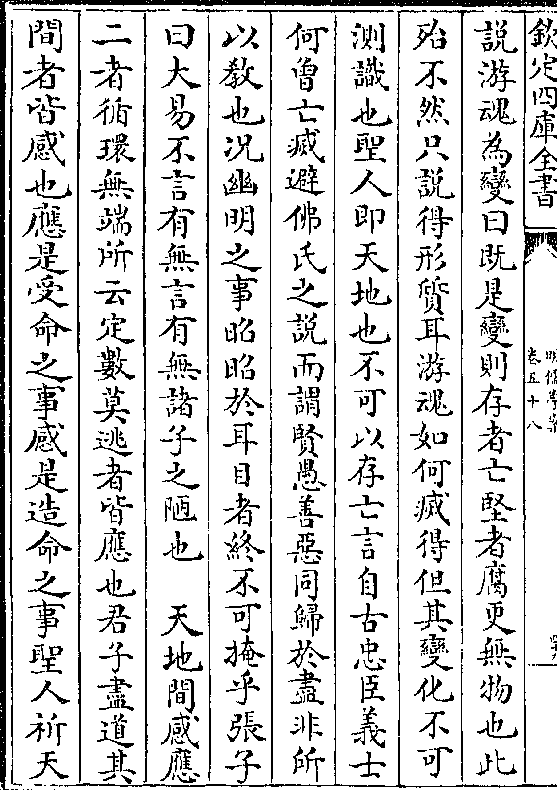 欽定四庫全書
明儒學案
卷五十八
說游魂為變曰既是變則存者亡堅者腐更無物也此
殆不然只說得形質耳游魂如何㓕得但其變化不可
測識也聖人即天地也不可以存亡言自古忠臣義士
何曾亡㓕避佛氏之說而謂賢愚善惡同歸於盡非所
以教也况幽明之事昭昭於耳目者終不可掩乎張子
曰大易不言有無言有無諸子之陋也　天地間感應
二者循環無端所云定數莫逃者皆應也君子盡道其
間者皆感也應是受命之事感是造命之事聖人祈天